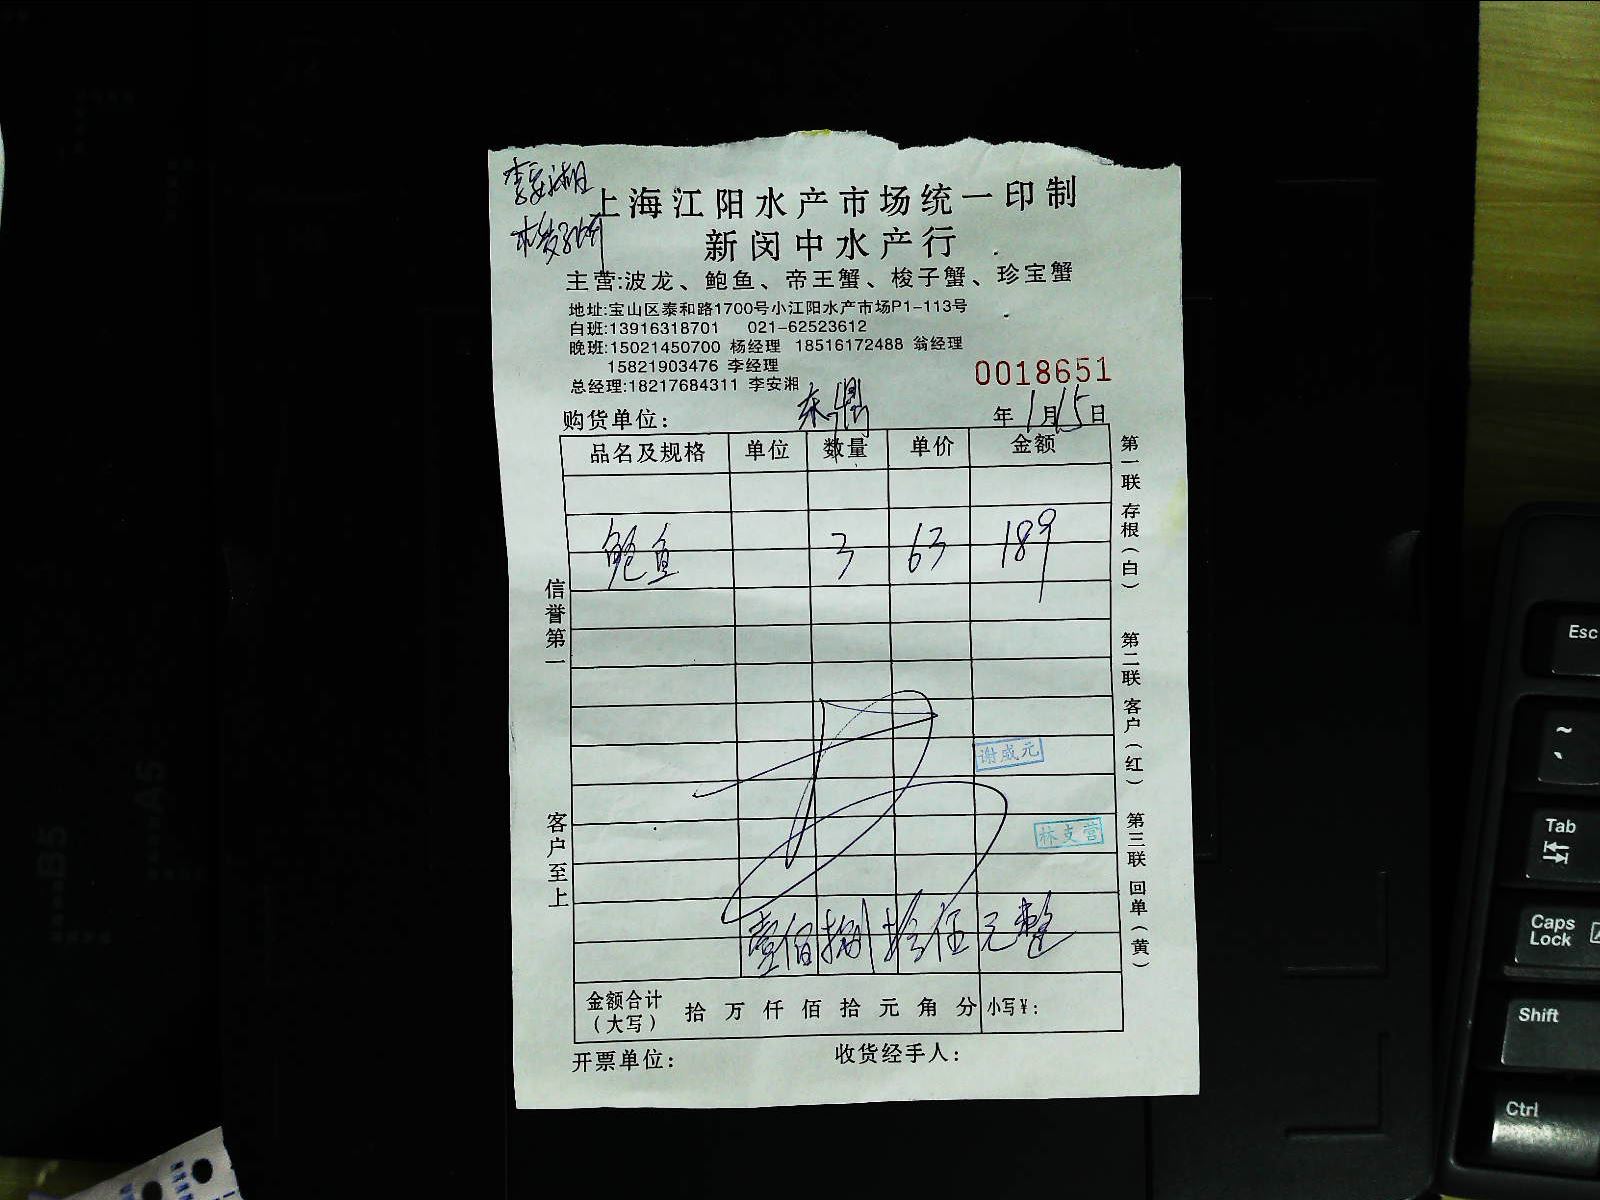 李安湘
上海江阳水产市场统一印制
新闵中水产行
主营:波龙、鲍鱼、帝王蟹、梭子蟹、珍宝蟹
地址:宝山区泰和路1700号小江阳水产市场P1-113号
白班:13916318701 021-62523612
晚班:15021450700 杨经理 18516172488 翁经理
15821903476 李经理
总经理:18217684311 李安湘
0018651
购货单位: 东鼎
年1月15日
品名及规格 单位 数量 单价 金额
鲍鱼 3 63 189
谢成元
林支营
壹佰捌拾伍元整
金额合计(大写) 拾 万 仟 佰 拾 元 角 分 小写¥:
开票单位: 收货经手人:
信誉第一
客户至上
第一联 存根(白)
第二联 客户(红)
第三联 回单(黄)
B5
A5
Esc
~
Tab
Caps Lock
Shift
Ctrl